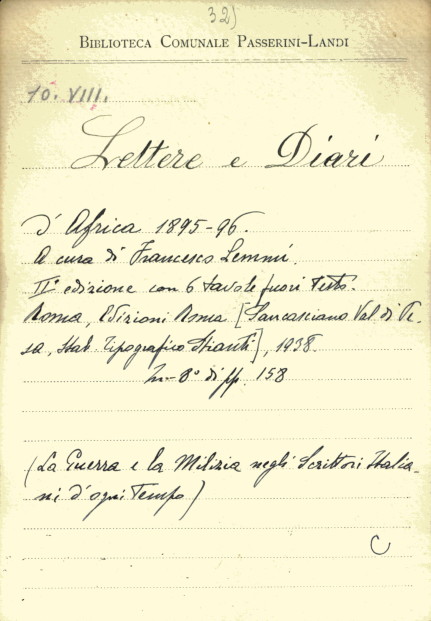 32)
BIBLIOTECA COMUNALE PASSERINI-LANDI
10. VIII.
Lettere e Diari
d'Africa 1895-96.
A cura di Francesco Lemmi.
IIª edizione con 6 tavole fuori testo.
Roma, Edizioni Roma [Sancasciano Val di Pe-
sa, Stab. Tipografico Stianti], 1938.
In-8° di pp. 158
(La Guerra e la Milizia negli Scrittori Italia-
ni d'ogni Tempo)
C